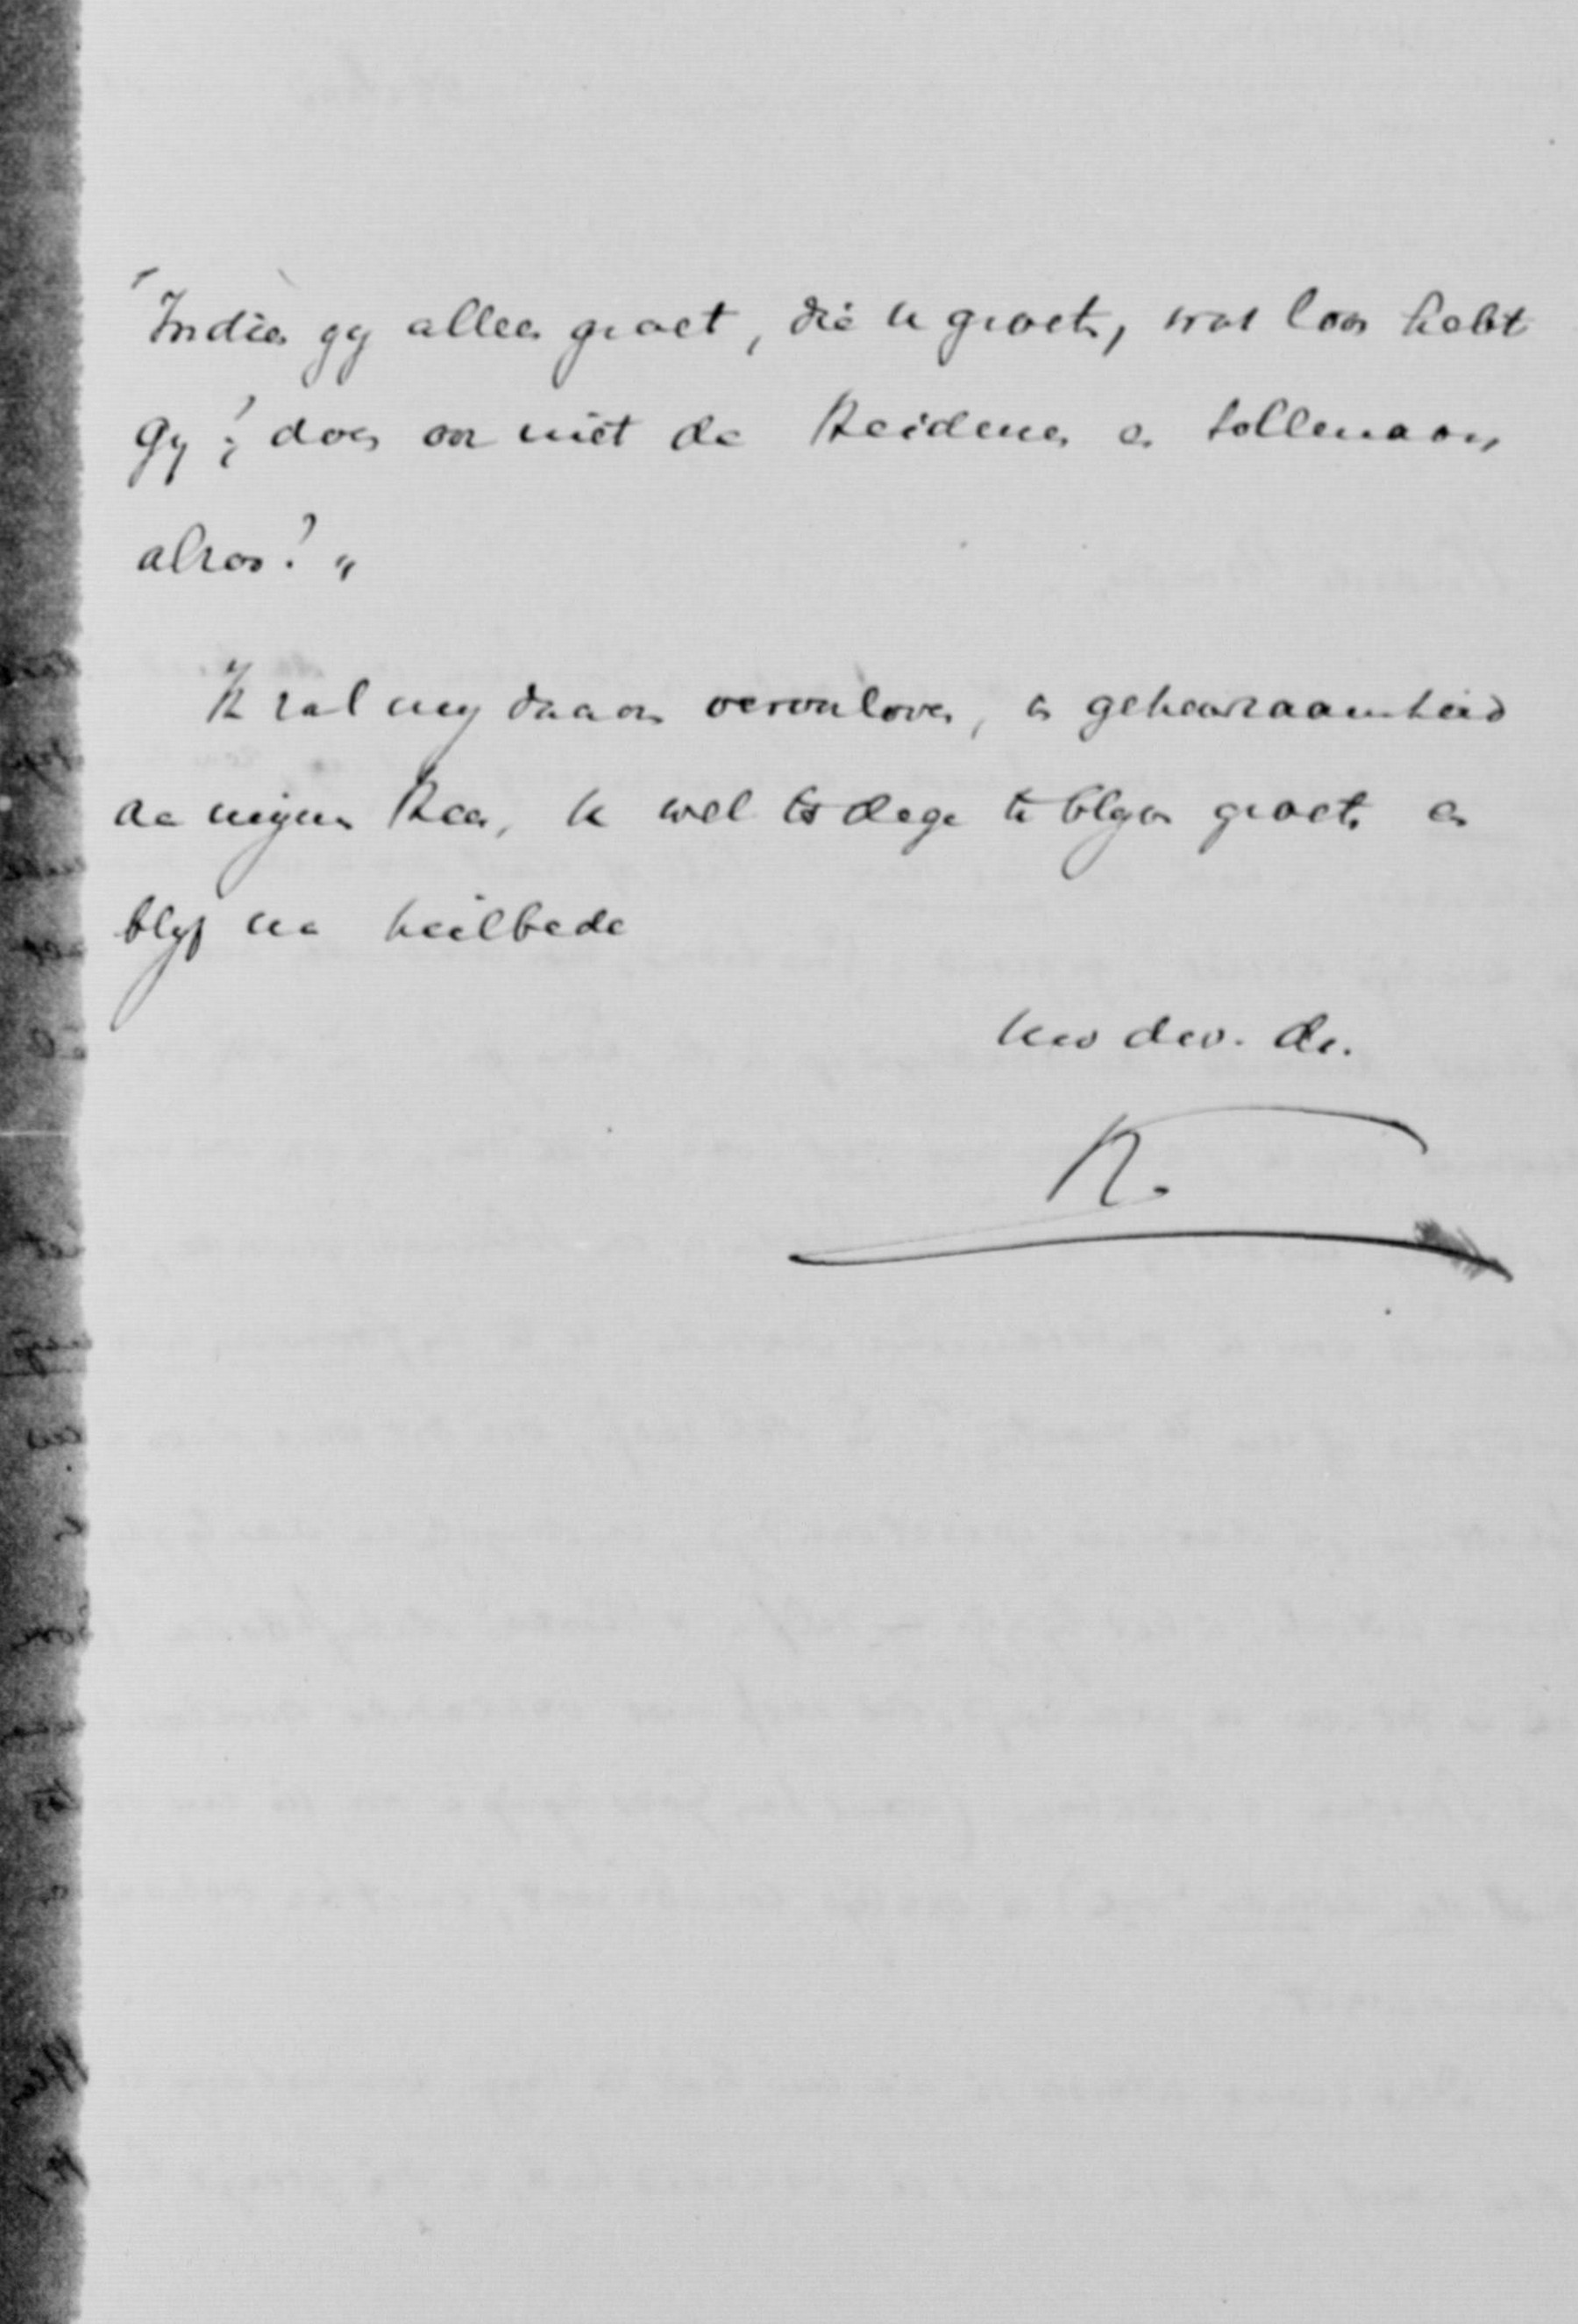 "Indien gy alleen groet, die u groeten, wat loon hebt
gy? doen ook niet de Heidenen en tollenaars
alzoo?"
Ik zal my daaraan veroorloven, in gehoorzaamheid
aan mynen Heer, u wel ter dege te blyven groeten en
blyf na heilbede
Uw dw. dr.
K.